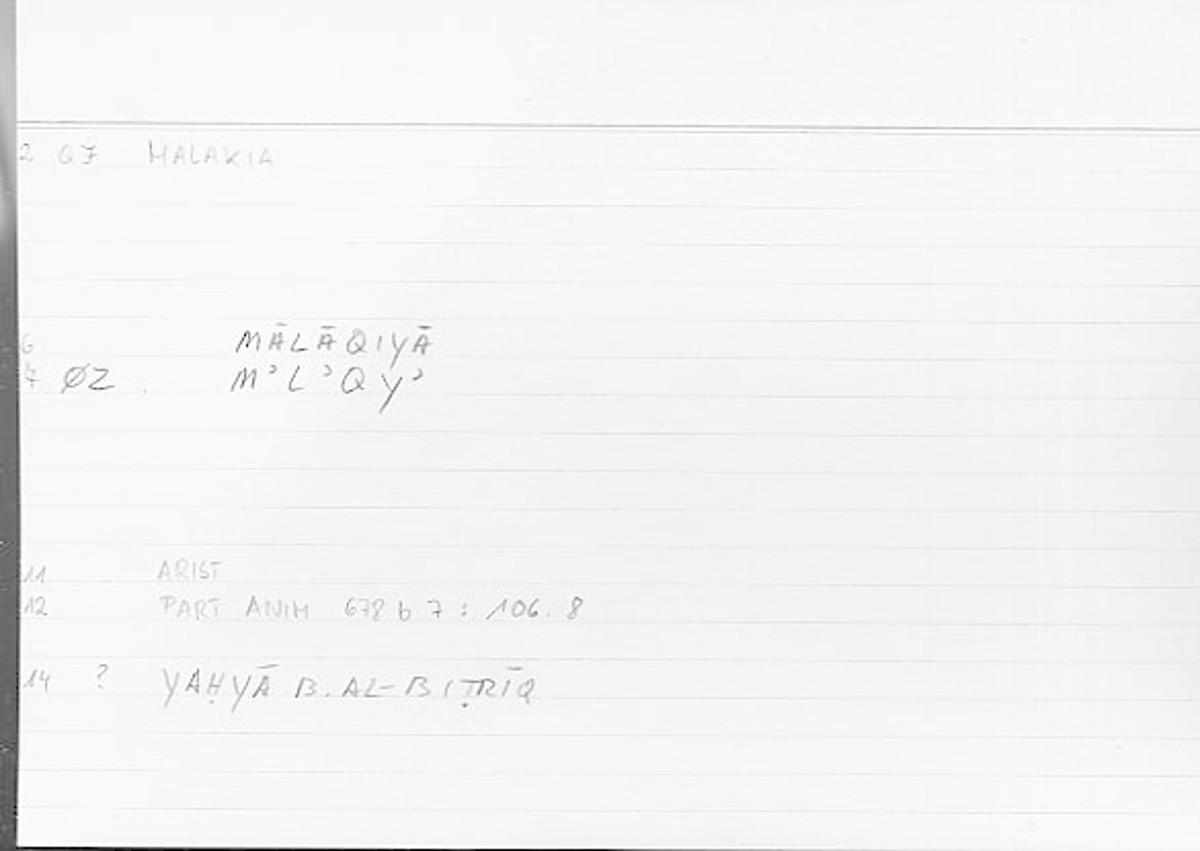 2 07 MALAKIA
6 MĀLĀQIYĀ
7 ØZ . MʾLʾQYʾ
11 ARIST
12 PART ANIM 678 b 7 : 106. 8
14 ? YAḤYĀ B. AL-BIṬRĪQ